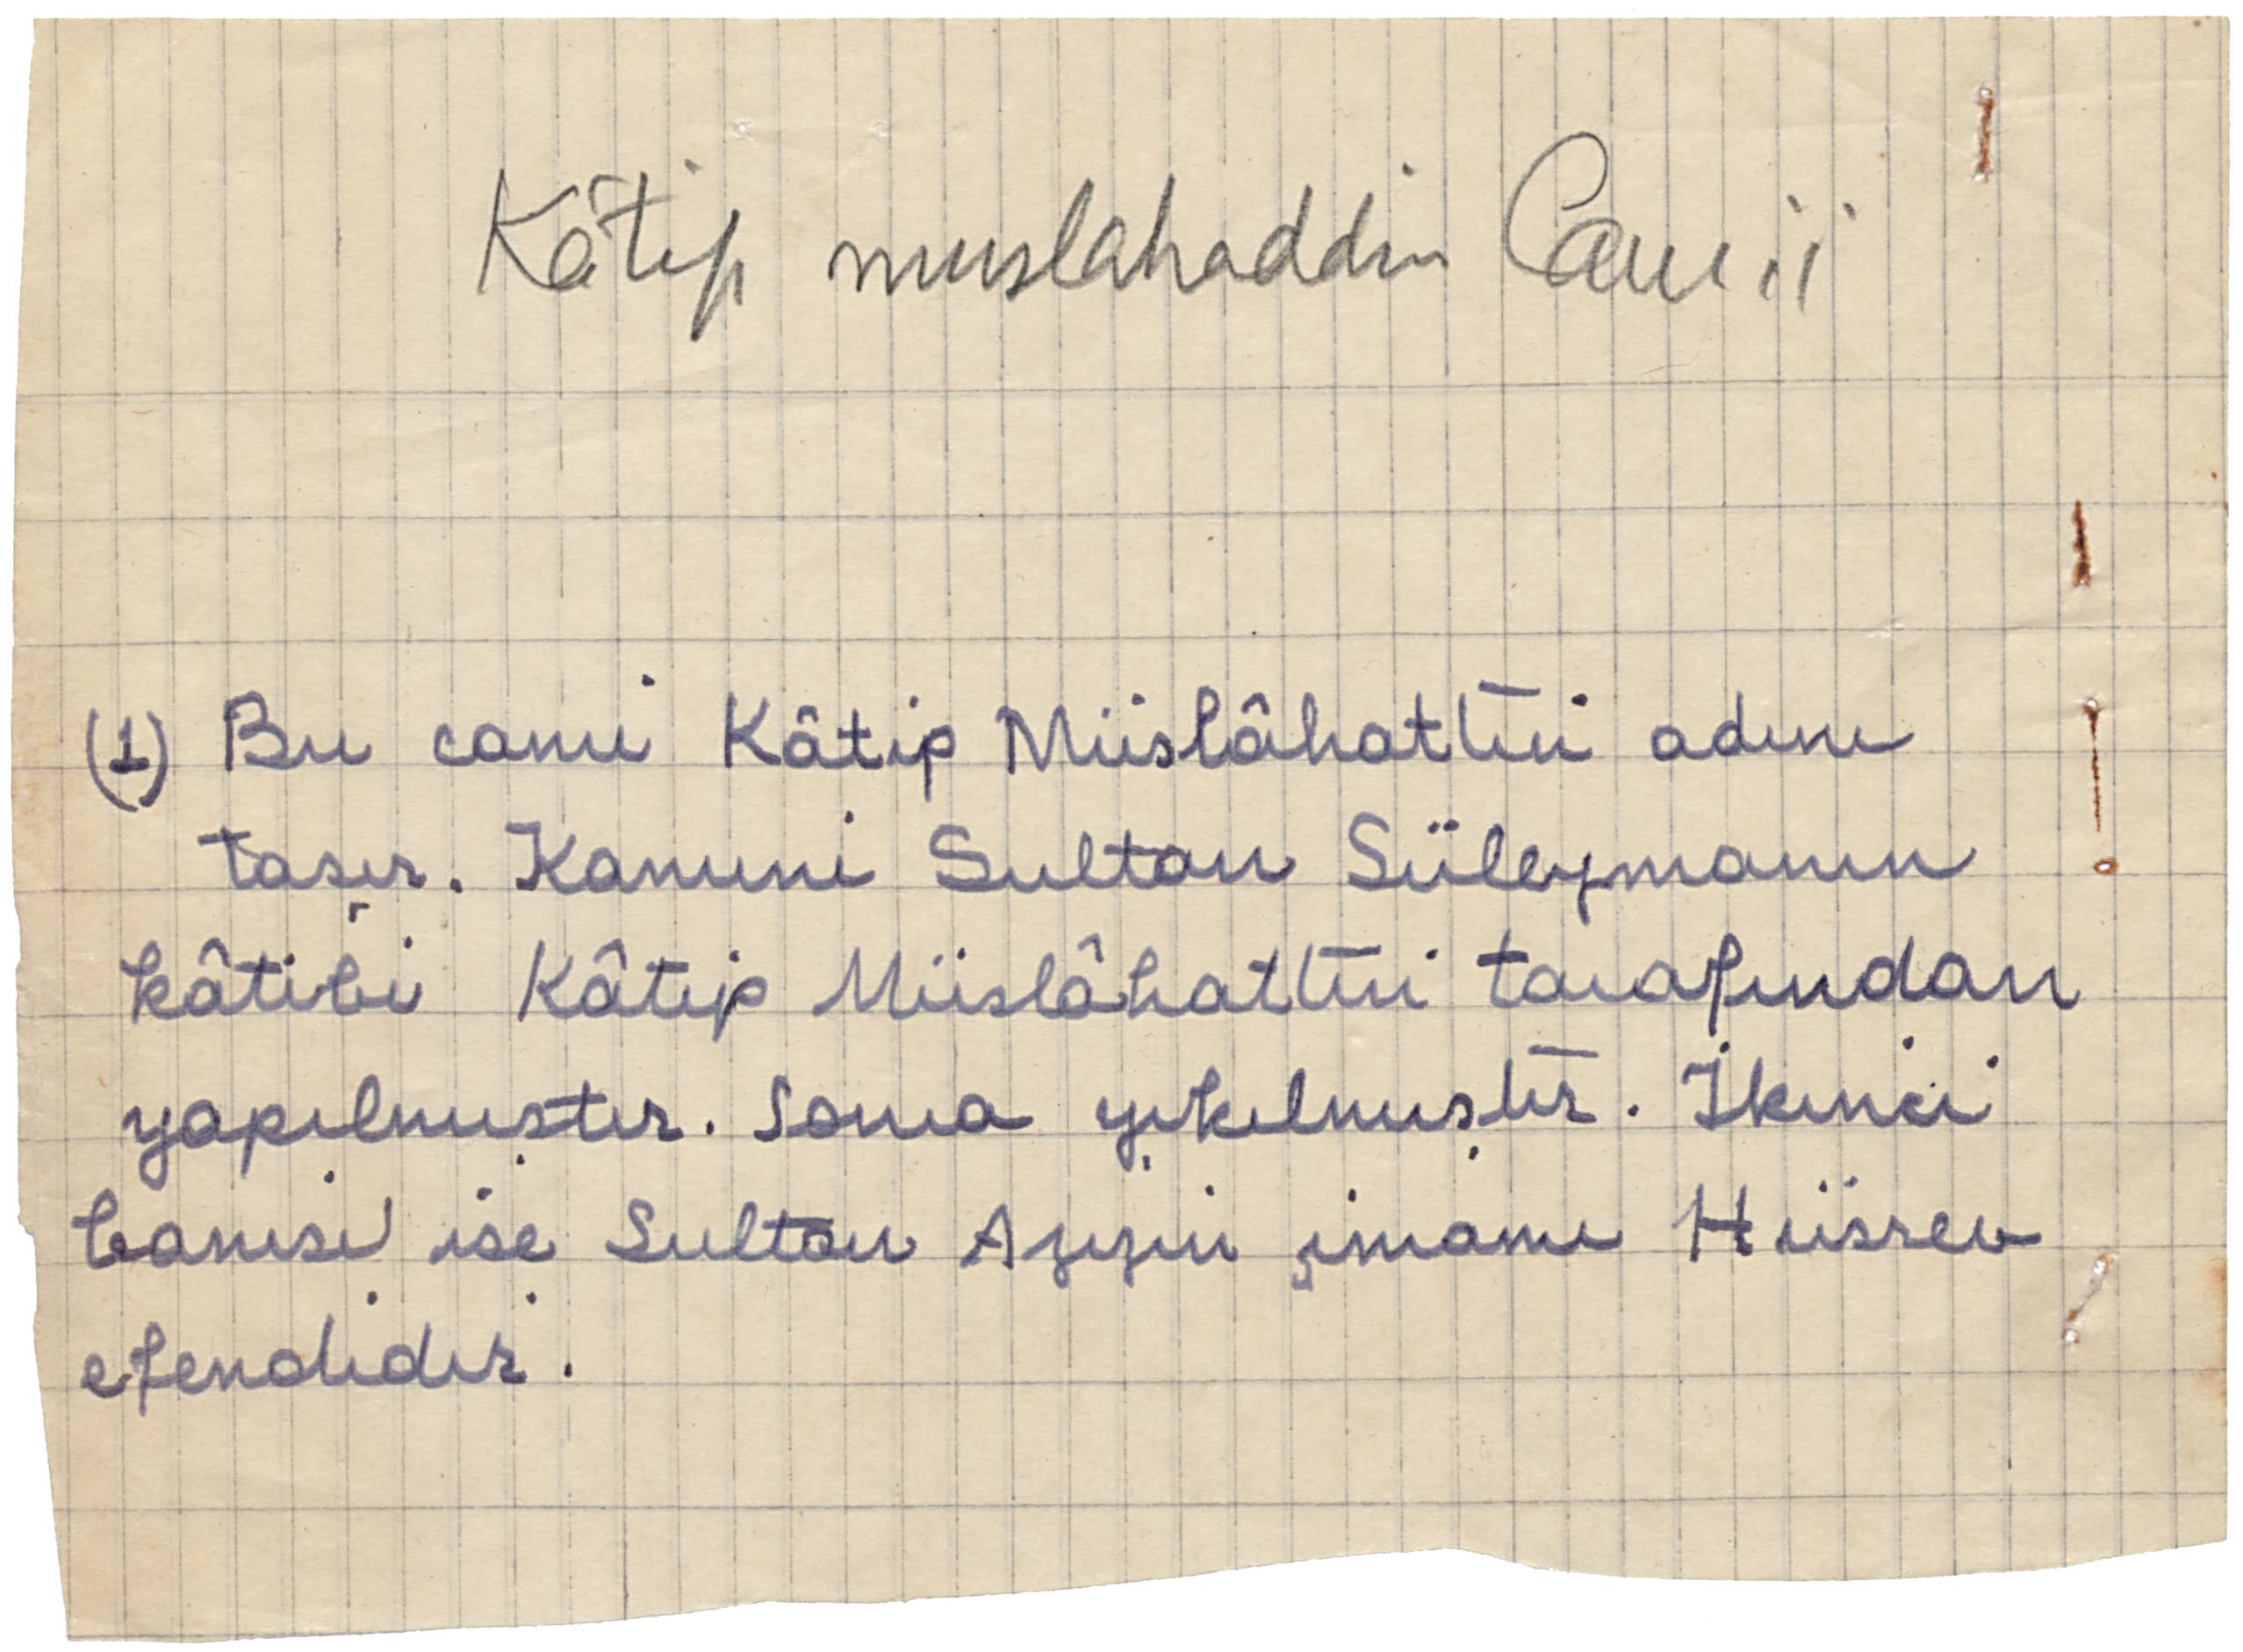 Kâtip muslahaddin Camii
(1) Bu cami Kâtip Müslâhattin adını
taşır. Kanuni Sultan Süleymanın
kâtibi Kâtip Müslâhattin tarafından
yapılmıştır. Sonra yıkılmıştır. İkinci
banisi ise Sultan Azizin imamı Hüsrev
efendidir.